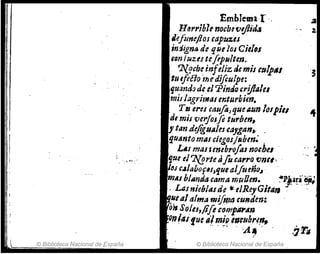 Emblema I.
Horrible noche vestida
de funestos capuzes
insigna de que los Cielos
con luzes te sepulten.
Noche infeliz de mis culpas
tu efecto me disculpe:
quando de el Pindo cristales
mis lagrimas enturbien.
Tu eres causa, que aun los pies
de mis versos se turben,
y tan desiguales caygan,
quanto mas ciegos suben.
Las mas tenebrosas noches
que el Norte à su carro vnce
los calaboços, que al sueño,
mas blanda cama mullen.
Las nieblas de * el Rey Gitan
que al alma misma cunden:
Son Soles, si se comparan
con las que al mio encubren,
A
y Tu
2
2
3
4
© Biblioteca Nacional de España
© Biblioteca Nacional de España